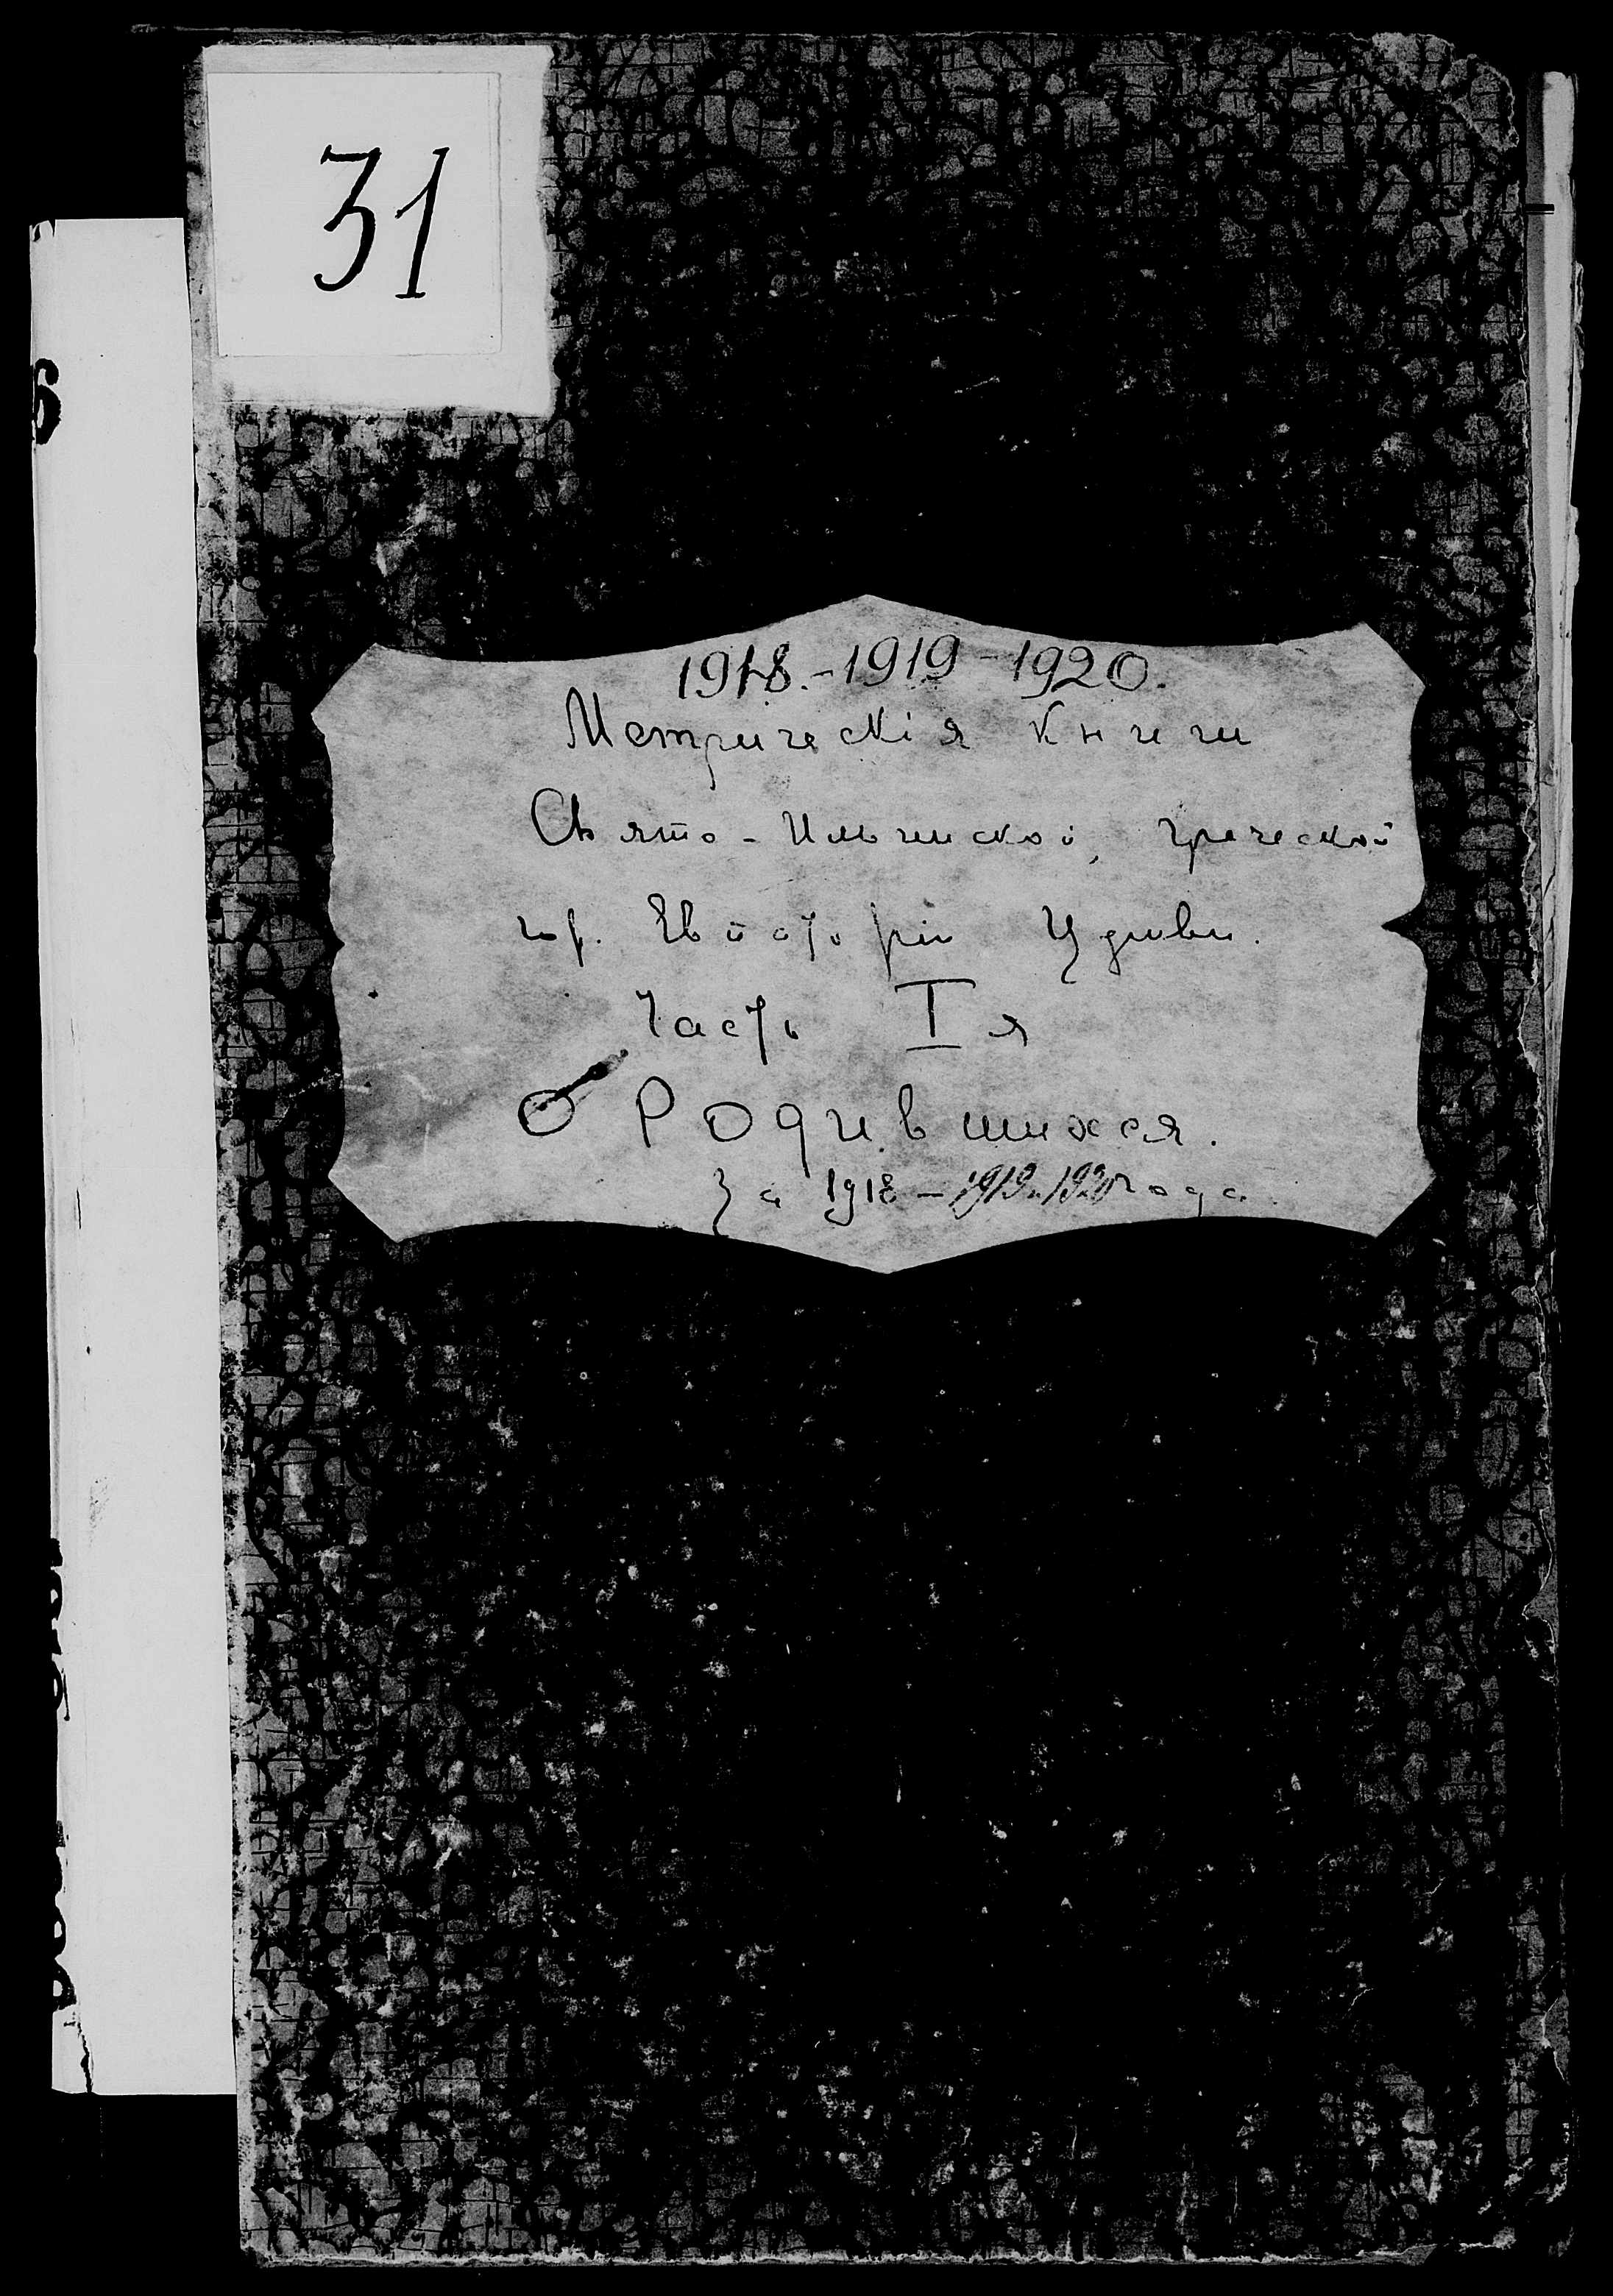 31
1918.-1919-1920.
Метрическія Книги
Свято-Ильинской, греческой
гор. Евпаторіи Церкви.
Часть I я
О Родившихся.
За 1918-1919-1920 года